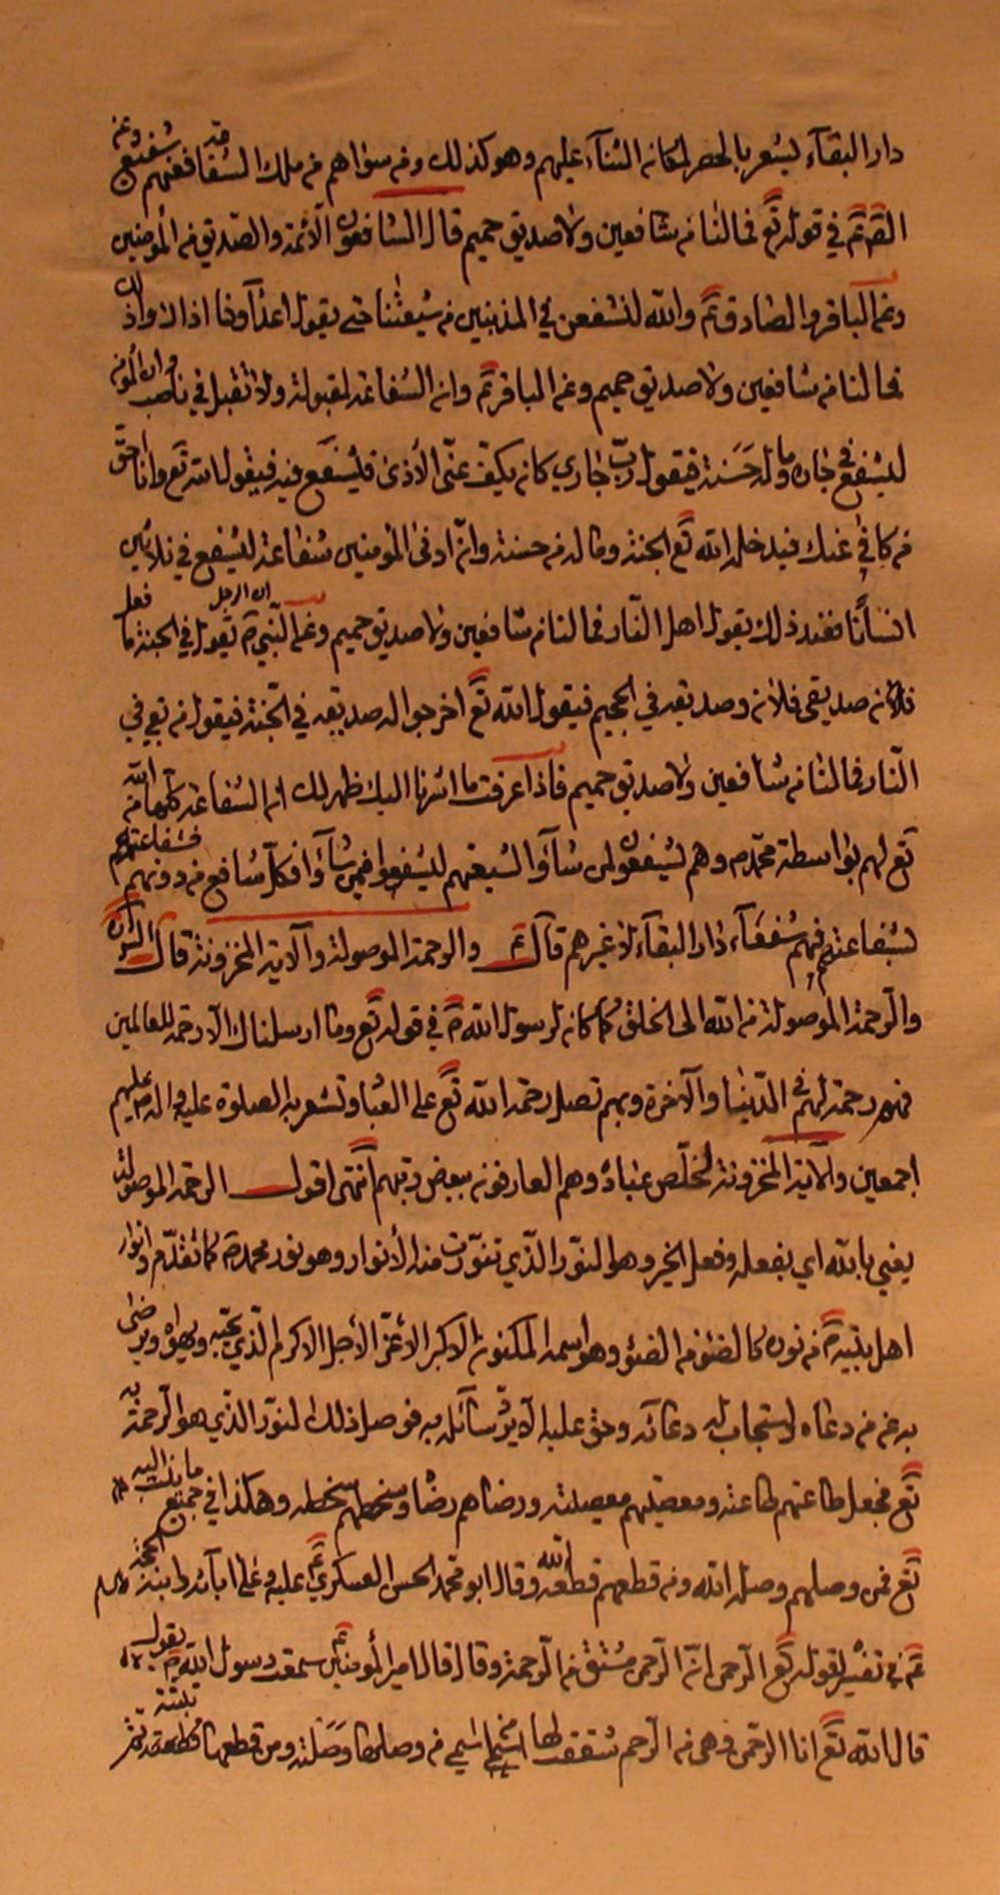 دار البقآء ليشعر بالحصر لمكانه الثنآء عليهم وهو كذلك ومن سواهم من ملك الشفاعة فعنهم شفيع وعن
الصّم في قوله تع فما لنا من شافعين ولا صديق حميم قال الشافعون الأئمة والصّديق من المؤمنين
وعن الباقر والصادق ع والله لنشفعن في المذنبين من شيعتنا حتى يقول اعدآونا اذا راوا ذلك
فما لنا من شافعين ولا صديق حميم وعن الباقر ع وان الشفاعة لمقبولة ولا تقبل في ناصب وان المؤمن
ليشفع في جاره وما له حَسَنة فيقول ربّ جاري كان يكفّ عنّى الأذى فيُشفَّع فيه فيقول الله تع وانا احقّ
من كافى عنك فيدخله الله تع الجنة وما له من حسنة وانّ ادنى المؤمنين شفاعة ليشفع في ثلاثين
انساناً فعند ذلك يقول اهل النّار فما لنا من شافعين ولا صديق حميم وعن النّبي ص ان الرجل يقول في الجنة ما فعل
فلان صديقى فلان وصديقه في الجحيم فيقول الله تع اخرجوا له صديقه في الجنة فيقول من بقي في
النّار فما لنا من شافعين ولا صديق حميم فاذا عرفت ما اشرنا اليك ظهر لك ان الشفاعة كلّها من الله
تع لهم بواسطة محمّد ص وهم يشفعون لمن شآؤا لشيعتهم ليشفعوا فيمن شآؤا فكل شافع من دونهم فشفاعتهم
بشفاعتهم فهم شفعآء دار البقآء لا غيرهم قال ع والرحمة الموصولة والآية المخزونة قال الش
والرحمة الموصولة من الله الى الخلق كما كان لرسول الله ص في قوله تع وما ارسلناك الا رحمة للعالمين
فهم رحمة لهم في الدّنيا والآخرة وبهم تصل رحمة الله تع على العباد وتشعر به الصلوة عليه واله عليهم
اجمعين والآية المخزونة لخلّص عباده وهم العارفون ببعض رتبهم انتهى اقول الرحمة الموصولة
يعني بالله اي بفعله وفعل الخير وهو النّور الّذي تنوّرت منه الأنوار وهو نور محمد ص كما تقدّم وانوار
اهل بيته ع من نوره كالضوء من الضوء وهو اسمه المكنون الاكبر الأعزّ الأجل الاكرم الّذي يحبّه ويهواه ويرضى
به عن من دعاه واستجاب له دعائه وحق عليه الّا يردّ سآئله به فوصل ذلك النوّر الّذي هو الرّحمة به
تع فجعل طاعتهم طاعته ومعصيتهم معصيته ورضاهم رضاه وسخطهم سخطه وهكذا في جميع ما ينسب اليه
تع فمن وصلهم وصله الله ومن قطعهم قطعه الله وقال ابو محمد الحسن العسكري ع عليه وعلى ابآئه وابنه الحجة السلام
ع في تفسير قوله تع الرّحمن انّ الرّحمن مشتق من الرّحمة وقال قال امير المؤمنين ع سمعت رسول الله ص يقول
قال الله تع انا الرّحمن وهي من الرّحم شققت لها اسما من اسمي من وصلها وَصَلته ومن قطعها قطعته